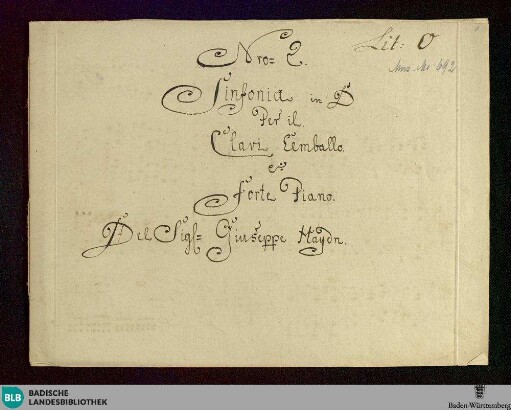 Lit: O
Mus. Ms 692
Nro= 2.
Sinfonia in D
Per il
Clavi Cemballo.
et
Forte Piano.
Del Sigr= Giuseppe Haydn.
BLB
BADISCHE
LANDESBIBLIOTHEK
Baden-Württemberg